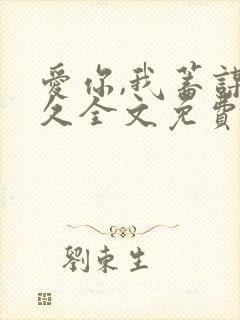 愛你,我蓄謀
久全文免費
劉東生